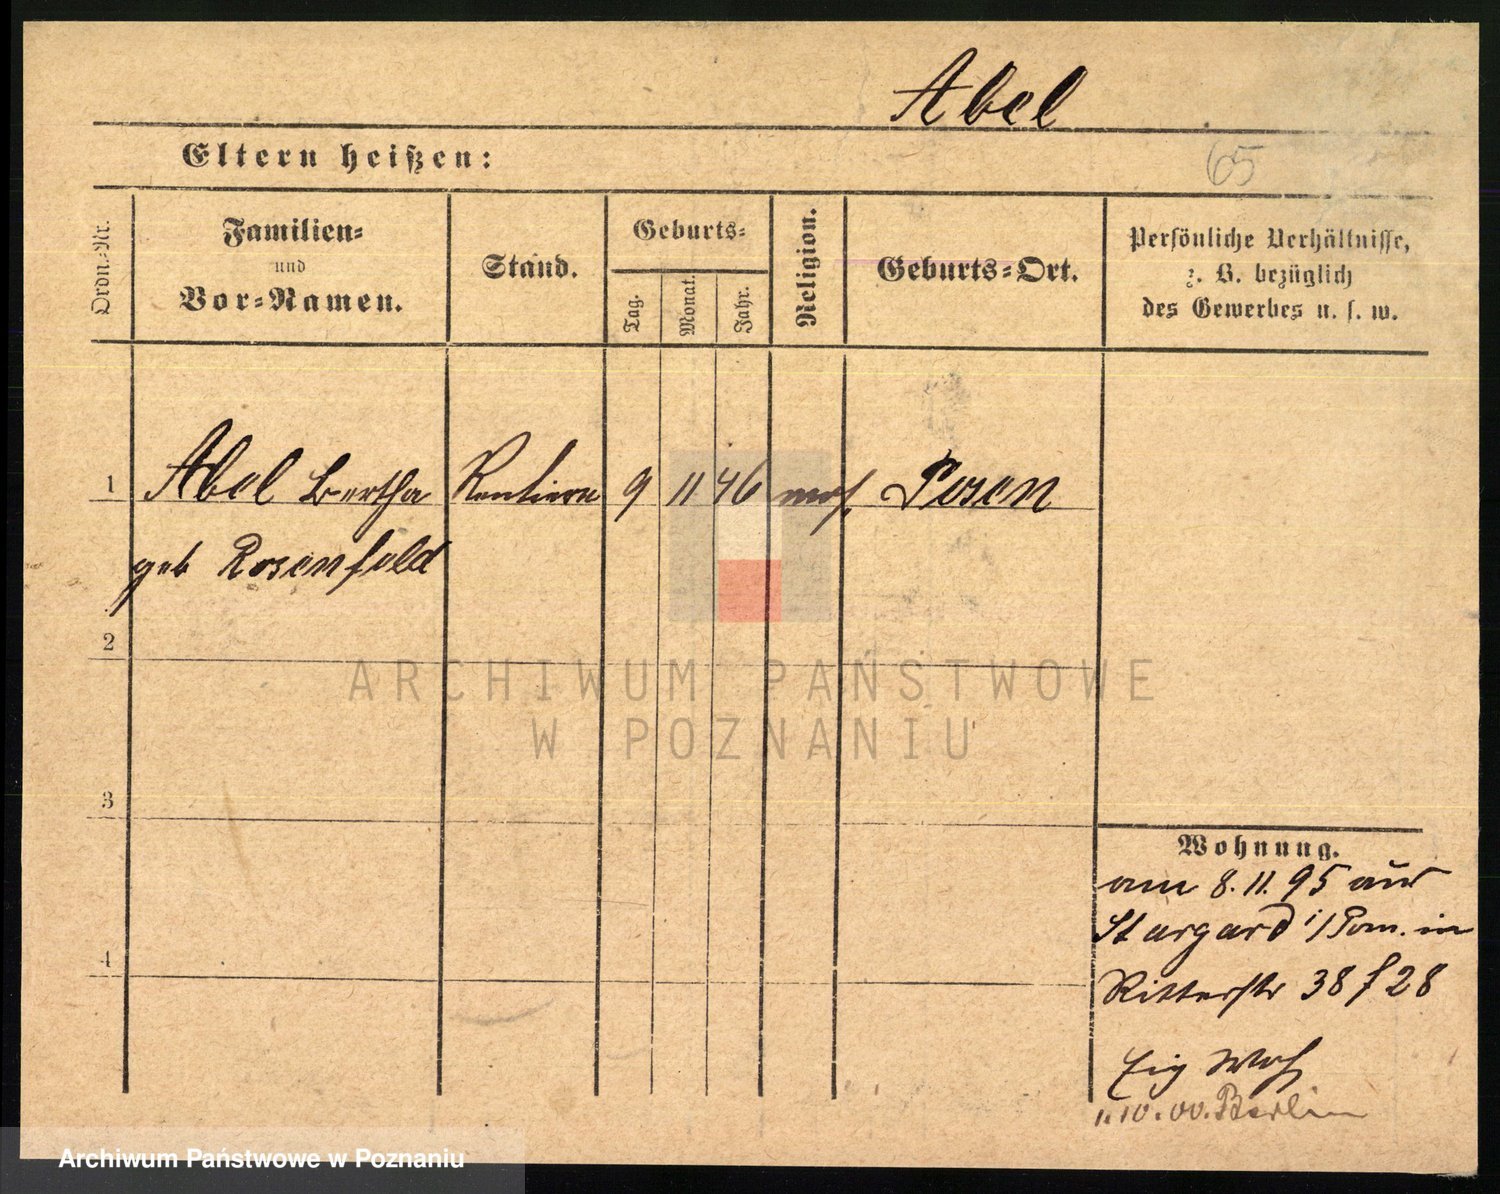 Abel
Eltern heißen:
65
Ordn.-Nr.
Familien-
und
Vor-Namen.
Stand.
Geburts-
Tag.
Monat.
Jahr.
Religion.
Geburts-Ort.
Persönliche Verhältnisse,
z. B. bezüglich
des Gewerbes u. s. w.
1 Abel Bertha Rentiere 9 11 46 mos. Posen
geb Rosenfeld
2
3
4
Wohnung.
am 8.11.95 aus
Stargard i/Pom. in
Ritterstr 38 f 28
Eig Woh
1.10.00. Berlin
ARCHIWUM PAŃSTWOWE
W POZNANIU
Archiwum Państwowe w Poznaniu